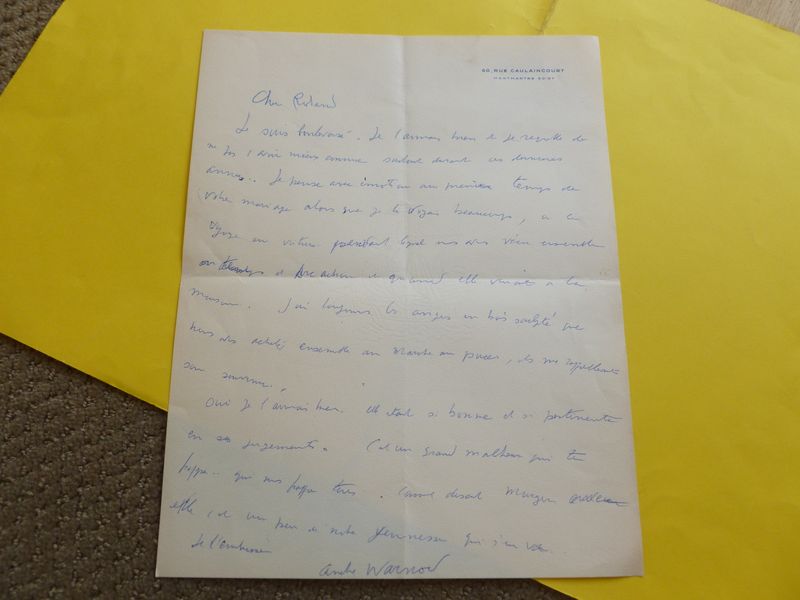 60, RUE CAULAINCOURT
MONTMARTRE
Cher Roland
Je suis bouleversé. Je l'aimais bien et je regrette de
ne pas l'avoir mieux connue surtout durant ces dernières
années.. Je pense avec émotion au premiers temps de
votre mariage alors que je te voyais beaucoup, à ce
voyage en voiture pendant lequel nous avons vécu ensemble
et Arcachon et quand elle venait à la
maison. J'ai toujours les anges en bois sculpté que
nous avons acheté ensemble au marché aux puces, ils me rappellent
son souvenir.
Oui je l'aimais bien. Elle était si bonne et si pertinente
en ses jugements. C'est un grand malheur qui te
frappe.. qui nous frappe tous. Comme disait Murger
c'est un peu de notre jeunesse qui s'en va..
Je t'embrasse
André Warnod